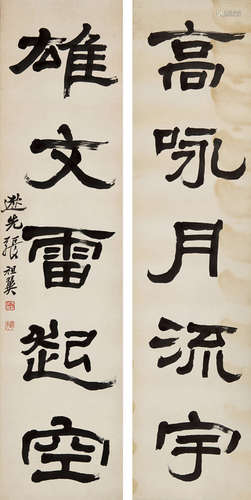 高咏月流宇
雄文雷起空
逖先張祖翼